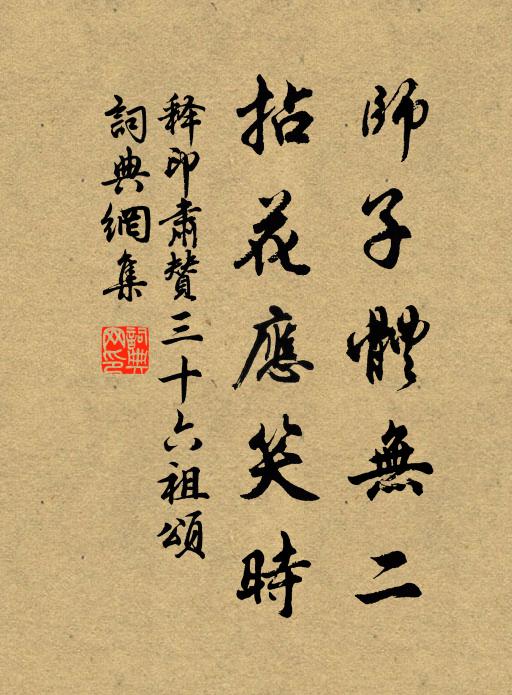 師子體無二
拈花應笑時
释印肃赞三十六祖頌
詞典網集
詞典
网印